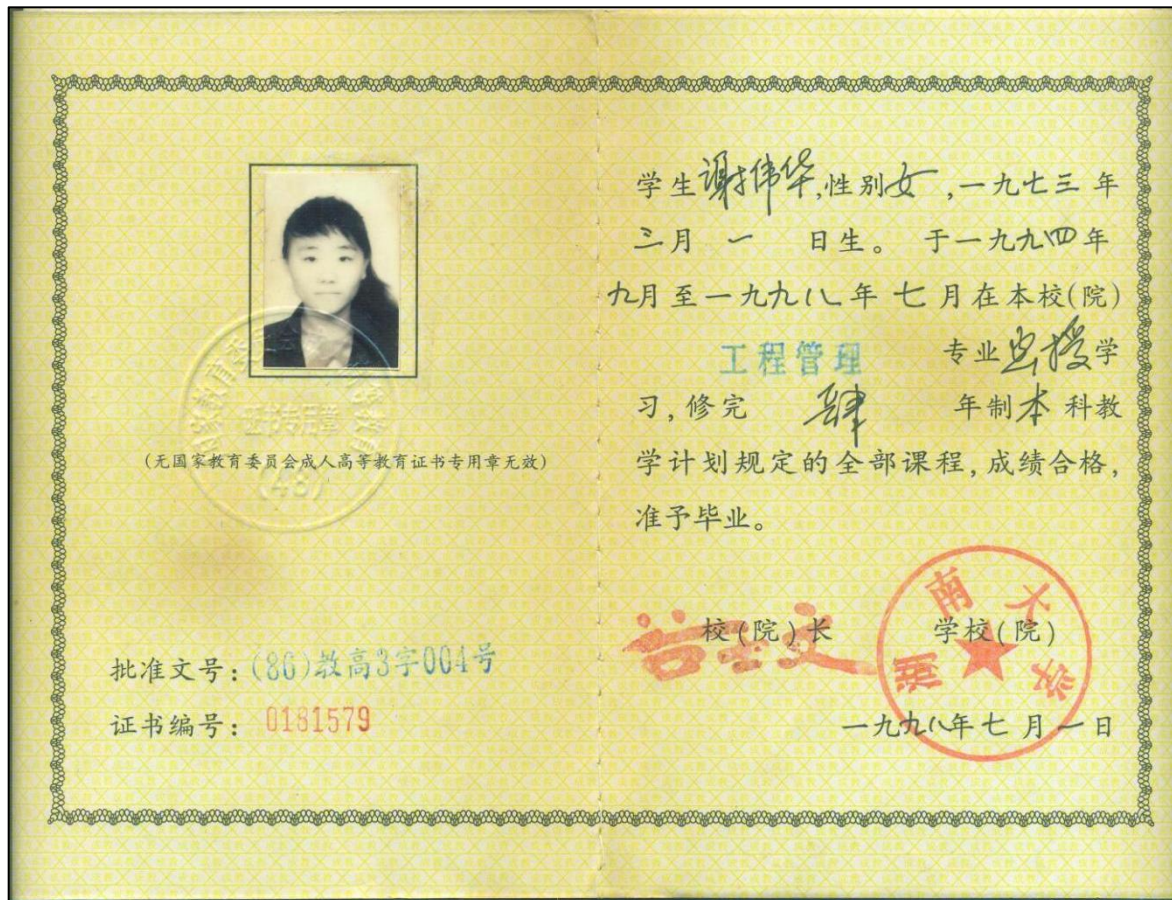 (无国家教育委员会成人高等教育证书专用章无效)
证书专用章
(48)
批准文号：(86)教高3字004号
证书编号： 0181579
学生谢伟华,性别女,一九七三年
三月 一 日生。 于一九九四年
九月至一九九八年七月在本校(院)
工程管理 专业函授学
习,修完 肆 年制本科教
学计划规定的全部课程,成绩合格,
准予毕业。
校(院)长 学校(院)
湖南大学
一九九八年七月一日